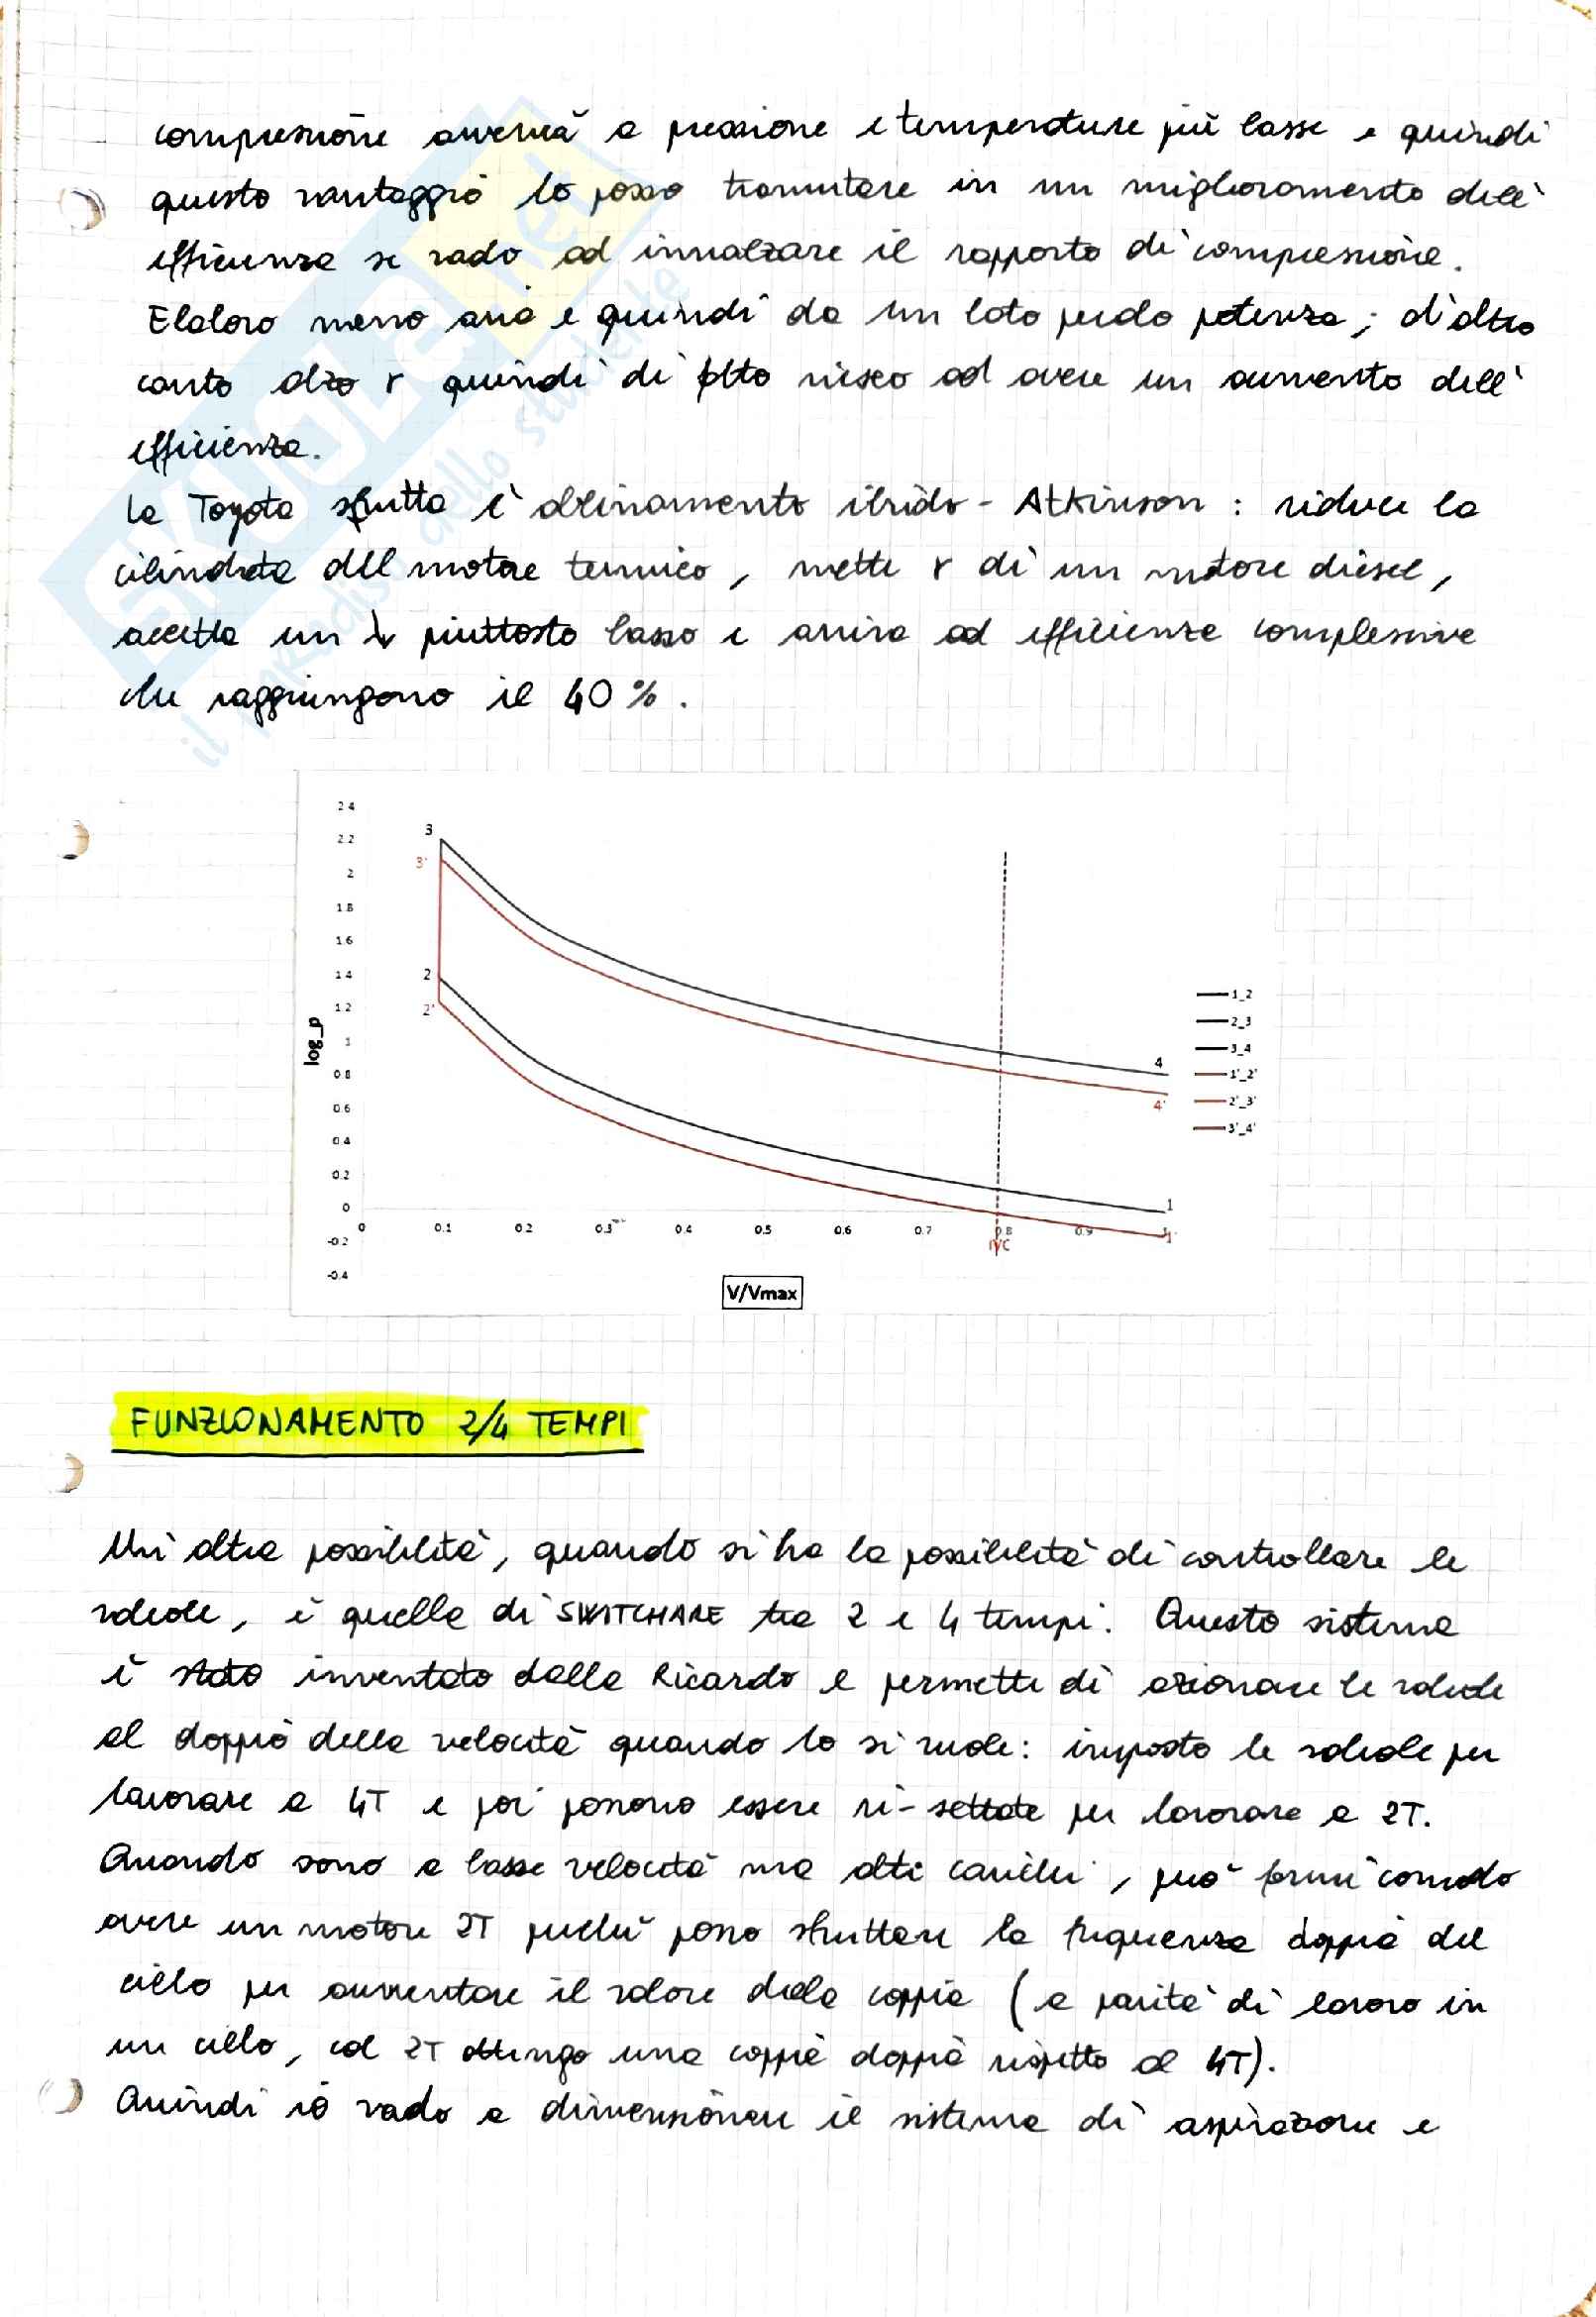 compressione avverrà a pressione e temperature più basse e quindi
questo vantaggio lo posso tramutare in un miglioramento dell'
efficienza se vado ad innalzare il rapporto di compressione.
Elaboro meno aria e quindi da un lato perdo potenza; d'altro
canto alzo r quindi di fatto riesco ad avere un aumento dell'
efficienza.
La Toyota sfrutta l'abbinamento ibrido - Atkinson : riduce la
cilindrata del motore termico, mette r di un motore diesel,
accetta un piuttosto basso e arriva ad efficienze complessive
che raggiungono il 40 %.
2.4
2.2
2
1.8
1.6
1.4
1.2
1
0.8
0.6
0.4
0.2
0
-0.2
-0.4
log_p
3
3'
2
2'
4
4'
1
1'
0 0.1 0.2 0.3 0.4 0.5 0.6 0.7 0.8 0.9 1
IVC
V/Vmax
1_2
2_3
3_4
1'_2'
2'_3'
3'_4'
FUNZIONAMENTO 2/4 TEMPI
Un'altra possibilità, quando si ha la possibilità di controllare le
valvole, è quella di SWITCHARE tra 2 e 4 tempi. Questo sistema
è stato inventato dalla Ricardo e permette di azionare le valvole
al doppio della velocità quando lo si vuole: imposto le valvole per
lavorare a 4T e poi possono essere ri-settate per lavorare a 2T.
Quando sono a basse velocità ma alti carichi, può farmi comodo
avere un motore 2T perché posso sfruttare la frequenza doppia del
ciclo per aumentare il valore della coppia (a parità di lavoro in
un ciclo, col 2T ottengo una coppia doppia rispetto al 4T).
Quindi io vado a dimensionare il sistema di aspirazione e
SKUOLA.net
il paradiso dello studente